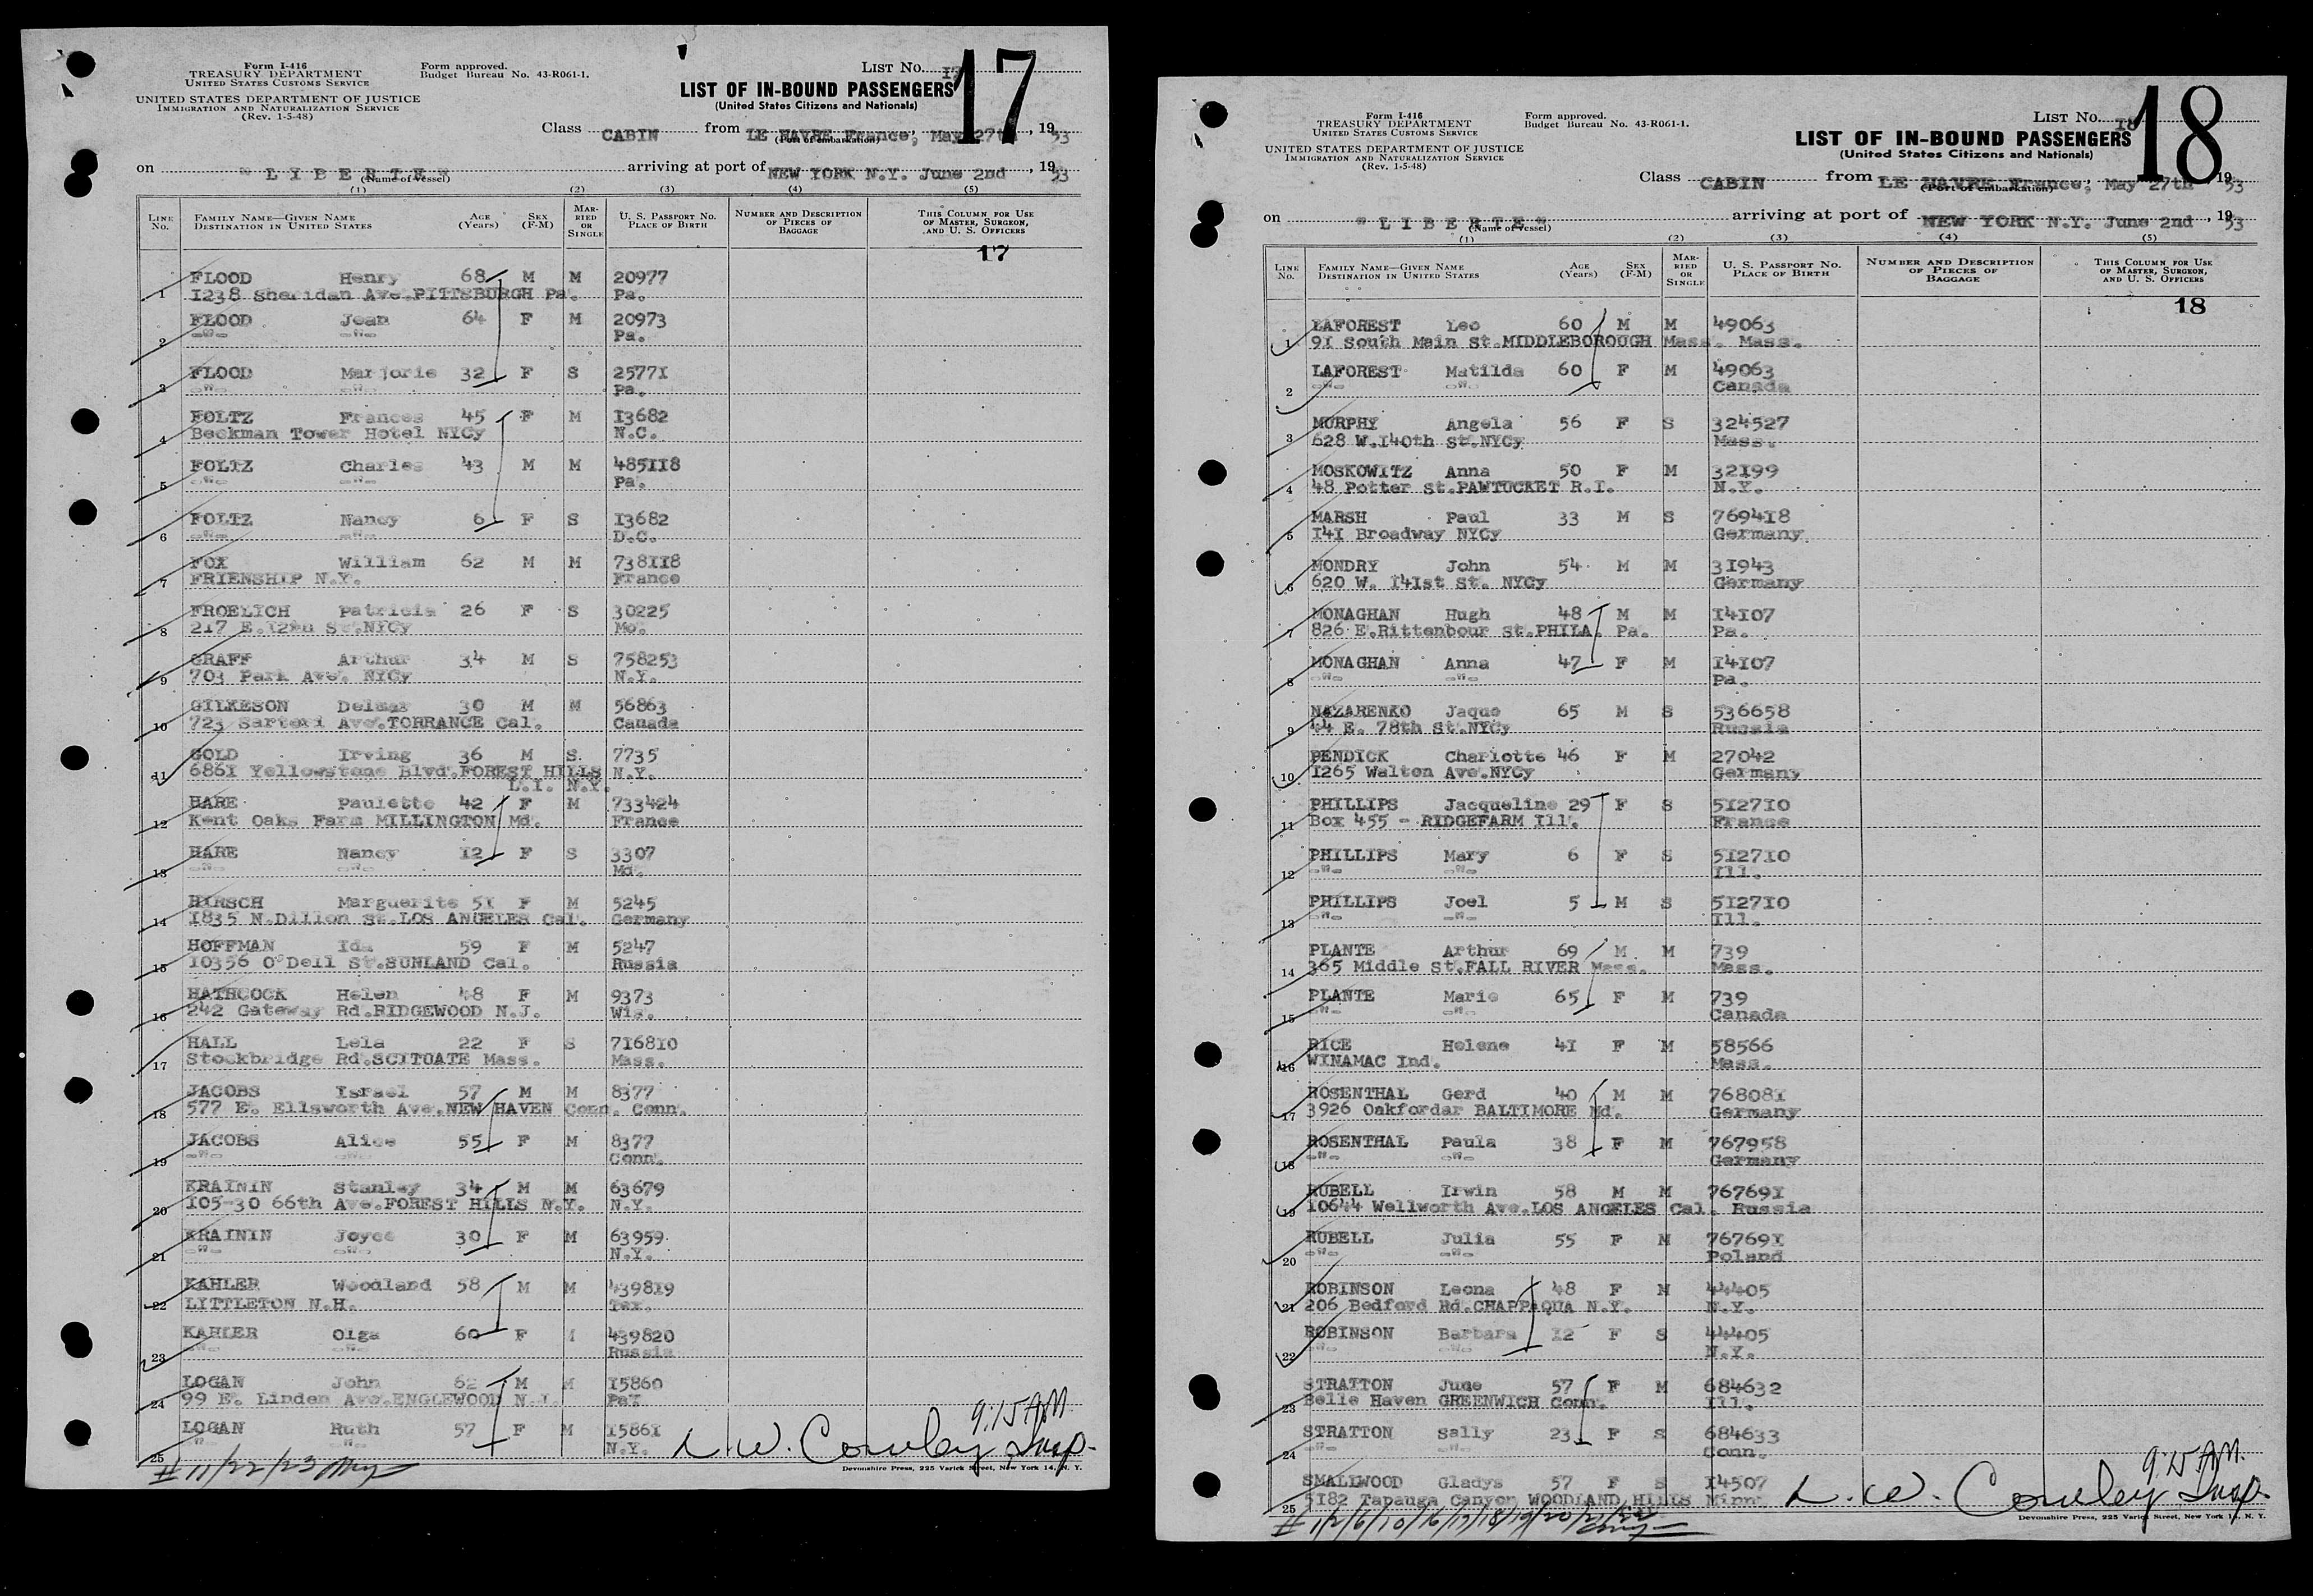 Form I-416
TREASURY DEPARTMENT
UNITED STATES CUSTOMS SERVICE
UNITED STATES DEPARTMENT OF JUSTICE
IMMIGRATION AND NATURALIZATION SERVICE
(Rev. 1-5-48)
Form approved.
Budget Bureau No. 43-R061-1.
LIST NO. 17
17
LIST OF IN-BOUND PASSENGERS
(United States Citizens and Nationals)
Class CABIN from LE HAVRE France, May 27th, 1953
(Port of embarkation)
on "LIBERTE" arriving at port of NEW YORK N.Y. June 2nd, 1953
(Name of vessel)
(1) (2) (3) (4) (5)
LINE No. FAMILY NAME—GIVEN NAME DESTINATION IN UNITED STATES AGE (Years) SEX (F-M) MARRIED OR SINGLE U. S. PASSPORT NO. PLACE OF BIRTH NUMBER AND DESCRIPTION OF PIECES OF BAGGAGE THIS COLUMN FOR USE OF MASTER, SURGEON, AND U. S. OFFICERS
17
1 FLOOD Henry 68 M M 20977
1238 Sheridan Ave.PITTSBURGH Pa. Pa.
2 FLOOD Jean 64 F M 20973
-"- -"- Pa.
3 FLOOD Marjorie 32 F S 25771
-"- -"- Pa.
4 FOLTZ Frances 45 F M 13682
Beekman Tower Hotel NYCy N.C.
5 FOLTZ Charles 43 M M 485118
-"- -"- Pa.
6 FOLTZ Nancy 6 F S 13682
-"- -"- D.C.
7 FOX William 62 M M 738118
FRIENSHIP N.Y. France
8 FROELICH Patricia 26 F S 30225
217 E.12th St.NYCy Mo.
9 GRAFF Arthur 34 M S 758253
703 Park Ave. NYCy N.Y.
10 GILKESON Delmar 30 M M 56863
723 Sartori Ave.TORRANCE Cal. Canada
11 GOLD Irving 36 M S 7735
6861 Yellowstone Blvd.FOREST HILLS N.Y.
L.I. N.Y.
12 HARE Paulette 42 F M 733424
Kent Oaks Farm MILLINGTON Md. France
13 HARE Nancy 12 F S 3307
-"- -"- Md.
14 HIRSCH Marguerite 51 F M 5245
1835 N.Dillon St.LOS ANGELES Cal. Germany
15 HOFFMAN Ida 59 F M 5247
10356 O'Dell St.SUNLAND Cal. Russia
16 HATHCOCK Helen 48 F M 9373
242 Gateway Rd.RIDGEWOOD N.J. Wis.
17 HALL Lela 22 F S 716810
Stockbridge Rd.SCITOATE Mass. Mass.
18 JACOBS Israel 57 M M 8377
577 E. Ellsworth Ave.NEW HAVEN Conn. Conn.
19 JACOBS Alice 55 F M 8377
-"- -"- Conn.
20 KRAININ Stanley 34 M M 63679
105-30 66th Ave.FOREST HILLS N.Y. N.Y.
21 KRAININ Joyce 30 F M 63959
-"- -"- N.Y.
22 KAHLER Woodland 58 M M 439819
LITTLETON N.H. Tex.
23 KAHLER Olga 60 F M 439820
-"- -"- Russia
24 LOGAN John 62 M M 15860
99 E. Linden Ave.ENGLEWOOD N.J. Pa.
25 LOGAN Ruth 57 F M 15861
" -"- N.Y.
9:15 AM
L. W. Cowley Insp.
# 11/22/23
Devonshire Press, 225 Varick Street, New York 14, N. Y.
Form I-416
TREASURY DEPARTMENT
UNITED STATES CUSTOMS SERVICE
UNITED STATES DEPARTMENT OF JUSTICE
IMMIGRATION AND NATURALIZATION SERVICE
(Rev. 1-5-48)
Form approved.
Budget Bureau No. 43-R061-1.
LIST NO. 18
18
LIST OF IN-BOUND PASSENGERS
(United States Citizens and Nationals)
Class CABIN from LE HAVRE France, May 27th 1953
(Port of embarkation)
on "LIBERTE" arriving at port of NEW YORK N.Y. June 2nd, 1953
(Name of vessel)
(1) (2) (3) (4) (5)
LINE No. FAMILY NAME—GIVEN NAME DESTINATION IN UNITED STATES AGE (Years) SEX (F-M) MARRIED OR SINGLE U. S. PASSPORT NO. PLACE OF BIRTH NUMBER AND DESCRIPTION OF PIECES OF BAGGAGE THIS COLUMN FOR USE OF MASTER, SURGEON, AND U. S. OFFICERS
18
1 LAFOREST Leo 60 M M 49063
91 South Main St.MIDDLEBOROUGH Mass. Mass.
2 LAFOREST Matilda 60 F M 49063
-"- -"- Canada
3 MURPHY Angela 56 F S 324527
628 W.140th St.NYCy Mass.
4 MOSKOWITZ Anna 50 F M 32199
48 Potter St.PAWTUCKET R.I. N.Y.
5 MARSH Paul 33 M S 769418
141 Broadway NYCy Germany
6 MONDRY John 54 M M 31943
620 W. 141st St. NYCy Germany
7 MONAGHAN Hugh 48 M M 14107
826 E.Rittenbour St.PHILA. Pa. Pa.
8 MONAGHAN Anna 47 F M 14107
-"- -"- Pa.
9 NAZARENKO Jaque 65 M S 536658
44 E. 78th St.NYCy Russia
10 PENDICK Charlotte 46 F M 27042
1265 Walton Ave.NYCy Germany
11 PHILLIPS Jacqueline 29 F S 512710
Box 455 - RIDGEFARM Ill. France
12 PHILLIPS Mary 6 F S 512710
-"- -"- Ill.
13 PHILLIPS Joel 5 M S 512710
-"- -"- Ill.
14 PLANTE Arthur 69 M M 739
365 Middle St.FALL RIVER Mass. Mass.
15 PLANTE Marie 65 F M 739
-"- -"- Canada
16 RICE Helene 41 F M 58566
WINAMAC Ind. Mass.
17 ROSENTHAL Gerd 40 M M 768081
3926 Oakfordar BALTIMORE Md. Germany
18 ROSENTHAL Paula 38 F M 767958
-"- -"- Germany
19 RUBELL Irwin 58 M M 767691
10644 Wellworth Ave.LOS ANGELES Cal. Russia
20 RUBELL Julia 55 F M 767691
-"- -"- Poland
21 ROBINSON Leona 48 F M 44405
206 Bedford Rd.CHAPPAQUA N.Y. N.Y.
22 ROBINSON Barbara 12 F S 44405
-"- -"- N.Y.
23 STRATTON June 57 F M 684632
Belle Haven GREENWICH Conn. Ill.
24 STRATTON Sally 23 F S 684633
-"- -"- Conn.
25 SMALLWOOD Gladys 57 F S 14507
5182 Tapauga Canyon WOODLAND HILLS Minn.
9:15 AM.
L. W. Cowley Insp.
# 1/2/6/10/16/17/18/19/20/21/22
Devonshire Press, 225 Varick Street, New York 14, N. Y.